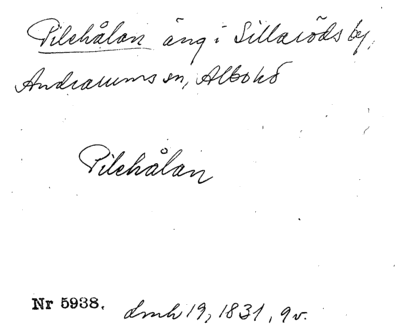 Pilehålan äng i Sillaröds by,
Andrarums sn, Albo hd
Pilehålan
Nr 5938. dmh 19, 1831, 9 v.